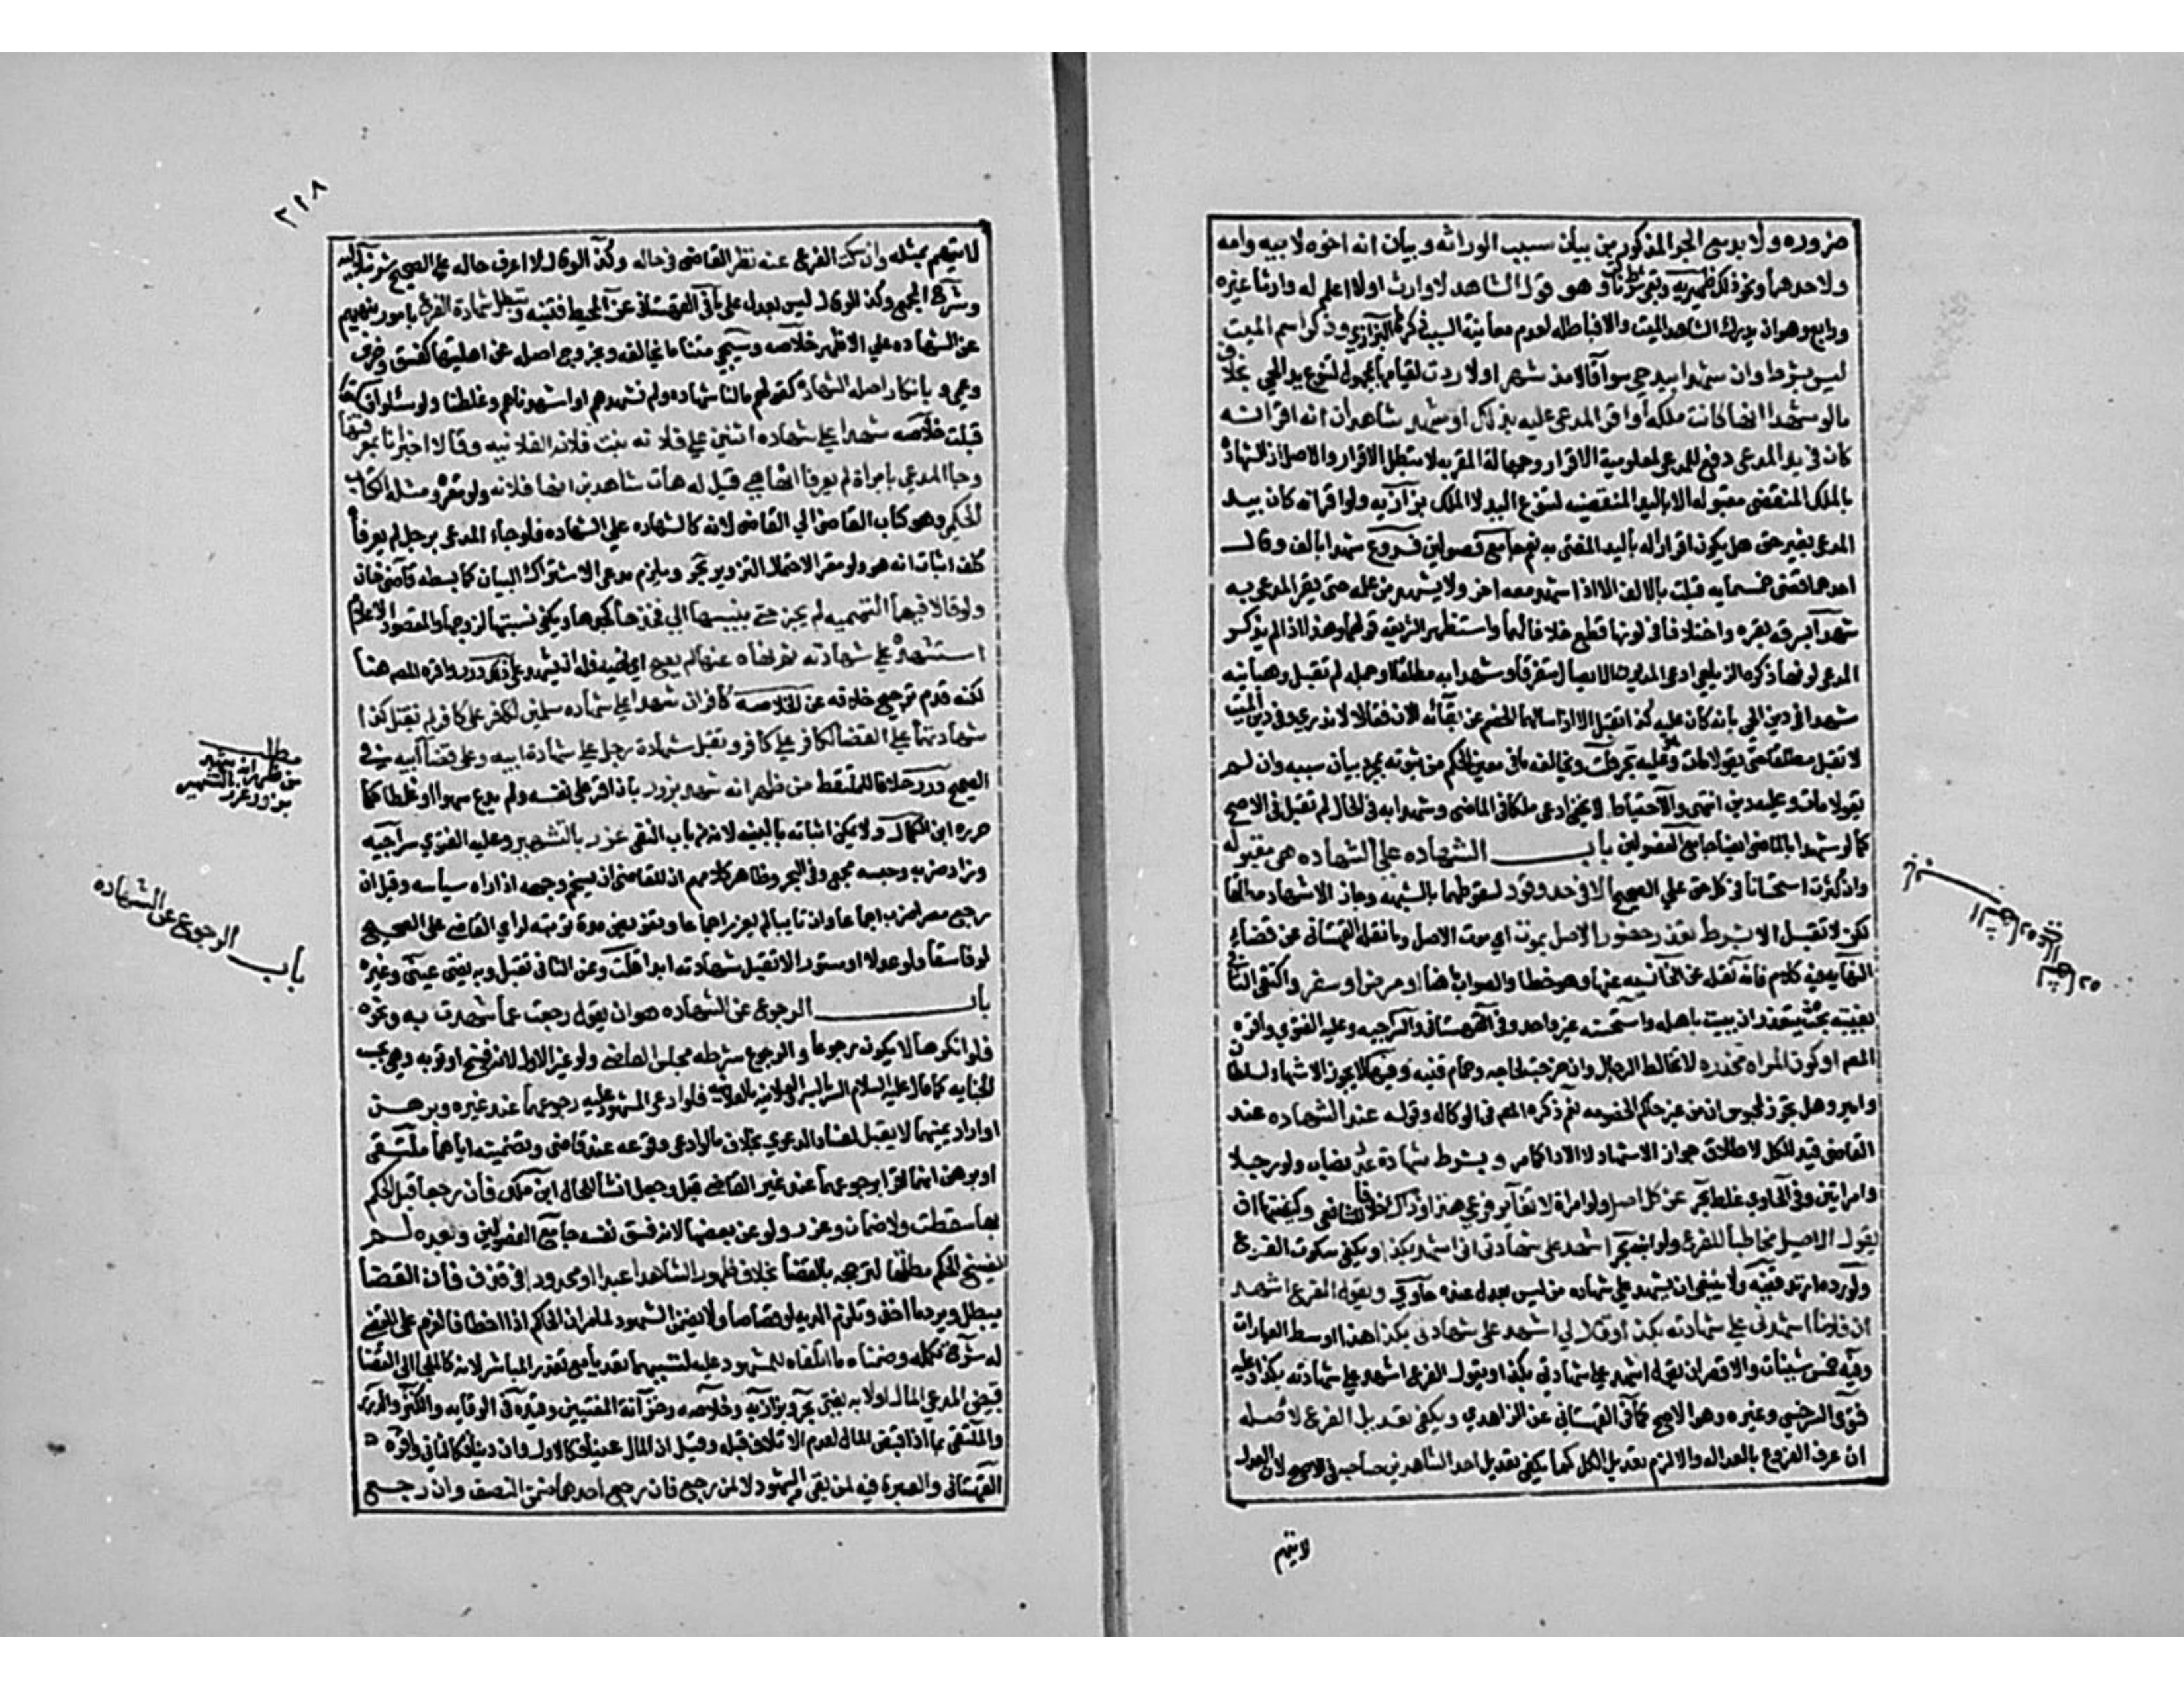 ضروره ولا بد مع الجر المذكور من بيان سبب الوراثه وبيان انه اخوه لابيه وامه
ولاحدهما ونحو ذلك ظهيريه وبقي شرط ثالث وهو قول الشاهد لا وارث اولا اعلم له وارثا غيره
ورابع وهو ان يدرك الشاهد الميت والا فباطله لعدم معاينة السبب ذكرهما البزازي وذكر اسم الميت
ليس بشرط وان شهدا بيد حي سوآ قالا مذ شهر اولا ردت لقيامها بمجهول لتنوع يد الحي بخلاف
مالو شهدا انها كانت ملكه او اقر المدعى عليه بذلك او شهد شاهدان انه اقر انه
كان في يد المدعي دفع للمدعي لمعلومية الاقرار وجهالة المقر به لا تبطل الاقرار والاصل ان الشهادة
بالملك المنقضي مقبوله لا باليد المنقضيه لتنوع اليد لا الملك بزازيه ولو اقر انه كان بيد
المدعي بغير حق هل يكون اقرارا له باليد المفتى به نعم جامع فصولين فروع شهدا بالف وقال
احدهما قضى خمسمايه قبلت بالالف الا اذا شهد معه اخر ولا يشهد من علمه حتى يقر المدعي به
شهدا بسرقه بقره واختلفا في لونها قطع خلافا لهما واستظهر صدر الشريعة قولهما وهذا اذا لم يذكر
المدعي لونها ذكره الزيلعي ادعى المديون الايصال متفرقا وشهدا به مطلقا او جمله لم تقبل وهبانيه
شهدا في دين الحي بانه كان عليه كذا تقبل الا اذا سالهما الخصم عن بقائه الان فقالا لا ندري وفي دين الميت
لا تقبل مطلقا حتى يقولا مات وهو عليه بحر قلت ويخالفه ما في معين الحكام من ثبوته بمجرد بيان سببه وان لم
يقولا مات وعليه دين انتهى والاحتياط لا يخفى ادعى ملكا في الماضي وشهدا به في الحال لم تقبل في الاصح
كما لو شهدا بالماضي ايضا جامع الفصولين باب الشهاده على الشهاده هي مقبوله
وان كثرت استحسانا في كل حق على الصحيح الا في حد وقود لسقوطهما بالشبهه وجاز الاشهاد مطلقا
لكن لا تقبل الا بشرط تعذر حضور الاصل بموت اي موت الاصل وما نقله القهستاني عن قضاء
النهايه فيه كلام فانه نقله عن الخانيه عنها وهو خطا والصواب هنا او مرض او سفر واكتفى الثاني
بغيبته بحيث يتعذر ان يبيت باهله واستحسنه غير واحد وفي القهستاني والسراجيه وعليه الفتوى واقره
المص او كون المراه مخدره لا تخالط الرجال وان خرجت لحاجه وحمام قنيه وفيها لا يجوز الاشهاد لسلطان
وامير وهل يجوز لمحبوس ان من غير حاكم الخصومه نعم ذكره المص في الوكاله وقوله عند الشهاده عند
القاضي قيد للكل لاطلاق جواز الاشهاد لا الادا كما مر وبشرط شهادة عدد نصاب ولو رجلا
وامراتين وفي الحاوي غلط بحر عن كل اصل ولو امراة لا تغاير فرعي هذا وذاك خلافا للشافعي وكيفيتها ان
يقول الاصيل مخاطبا للفرع ولو ابنه بحر اشهد على شهادتي اني اشهد بكذا ويكفي سكوت الفرع
ولو رده ارتد قنيه ولا ينبغي ان يشهد على شهاده من ليس بعدل عنده حاوي ويقول الفرع اشهد
ان فلانا اشهدني على شهادته بكذا وقال لي اشهد على شهادتي بكذا هذا اوسط العبارات
وفيه خمس شينات والاقصر ان يقول اشهد على شهادتي بكذا ويقول الفرع اشهد على شهادته بكذا وعليه
فتوى السرخسي وغيره وهو الاصح كما في القهستاني عن الزاهدي ويكفي تعديل الفرع لاصله
ان عرف الفروع بالعداله والا لزم تعديل الكل كما يكفي تعديل احد الشاهدين صاحبه في الاصح لان العدل
لا يتهم
٢١٨
لا يتهم بمثله وان سكت الفرع عنه نظر القاضي في حاله وكذا لو قال لا اعرف حاله على الصحيح شرنبلاليه
وشرح المجمع وكذا لو قال ليس بعدل على ما في القهستاني عن المحيط فتنبه وتبطل شهادة الفرع بامور بنهيهم
عن الشهاده على الاظهر خلاصه وسيجي متنا ما يخالفه وبخروج اصله عن اهليتها كفسق وخرس
وعمى وبانكار اصله الشهادة كقولهم مالنا شهاده ولم نشهدهم او اشهدناهم وغلطنا ولو سئلوا فسكتوا
قبلت خلاصه شهدا على شهاده اثنين على فلانه بنت فلان الفلانيه وقالا اخبرانا بمعرفتها
وجا المدعي بامراة لم يعرفا انها هي قيل له هات شاهدين انها فلانه ولو مقره ومثله الكتاب
الحكمي وهو كتاب القاضي الى القاضي لانه كالشهاده على الشهاده فلو جاء المدعي برجل لم يعرفاه
كلف اثبات انه هو ولو مقرا لاحتمال التزوير بحر ويلزم مدعي الاشتراك البيان كما بسطه قاضي خان
ولو قالا فيهما التميميه لم يجز حتى ينسباها الى فخذها كجدها ويكفي نسبتها لزوجها والمقصود الاعلام
استشهد على شهادته ثم نهاه عنها لم يصح اي نهيه فله ان يشهد على ذلك درر واقره المص هنا
لكنه قدم ترجيح خلافه عن الخلاصه كافران شهدا على شهاده مسلمين لكافر على كافر لم تقبل كذا
شهادتهما على القضا لكافر على كافر وتقبل شهادة رجل على شهادة ابيه وعلى قضا ابيه في
الصحيح درر خلافا للملتقط من ظهر انه شهد بزور بان اقر على نفسه ولم يدع سهوا او غلطا كما
حرره ابن الكمال ولا يمكن اثباته بالبينه لانه من باب النفي عزر بالتشهير وعليه الفتوى سراجيه
وزاد ضربه وحبسه مجمع وفي البحر وظاهر كلامهم ان للقاضي ان يسخم وجهه اذا راه سياسه وقيل ان
رجع مصرا ضرب اجماعا وان تايبا لم يعزر اجماعا وتفويض مدة توبته لراي القاضي على الصحيح
لو فاسقا ولو عدلا او مستورا لا تقبل شهادته ابدا قلت وعن الثاني تقبل وبه يفتى عيني وغيره
باب الرجوع عن الشهاده هو ان يقول رجعت عما شهدت به ونحوه
فلو انكرها لا يكون رجوعا والرجوع شرطه مجلس القاضي ولو غير الاول لانه فسخ او توبه وهي بحسب
الجنايه كما قال عليه السلام السر بالسر والعلانيه بالعلانيه فلو ادعى المشهود عليه رجوعهما عند غيره وبرهن
او اراد يمينهما لا يقبل لفساد الدعوى بخلاف مالو ادعى وقوعه عند قاض وتضمينه اياهما ملتقى
او برهن انهما اقرا برجوعهما عند غير القاضي قبل وجعل انشا للحال ابن ملك فان رجعا قبل الحكم
بها سقطت ولا ضمان وعزر ولو عن بعضها لانه فسق نفسه جامع الفصولين وبعده لم
يفسخ الحكم مطلقا لترجحه بالقضا بخلاف ظهور الشاهد عبدا او محدودا في قذف فان القضا
يبطل ويرد ما اخذ وتلزم الديه لو قصاصا ولا يضمن الشهود لما مر ان الحاكم اذا اخطا فالغرم على المقضي
له شرح تكمله وضمناه ما اتلفاه للمشهود عليه لتسببهما تعديا مع تعذر المباشر لانه كالملجا الى القضا
قبض المدعي المال اولا به يفتى بحر وبزازيه وخلاصه وخزانة المفتيين وقيده في الوقايه والكنز والدرر
والملتقى بما اذا قبض المال لعدم الاتلاف قبله وقيل ان المال عينا فكالاول وان دينا فكالثاني واقره
القهستاني والعبرة فيه لمن بقي من الشهود لا لمن رجع فان رجع احدهما ضمن النصف وان رجع
مطلب
من ظهر انه شهد
بزور عزر بالتشهير
باب الرجوع عن الشهاده